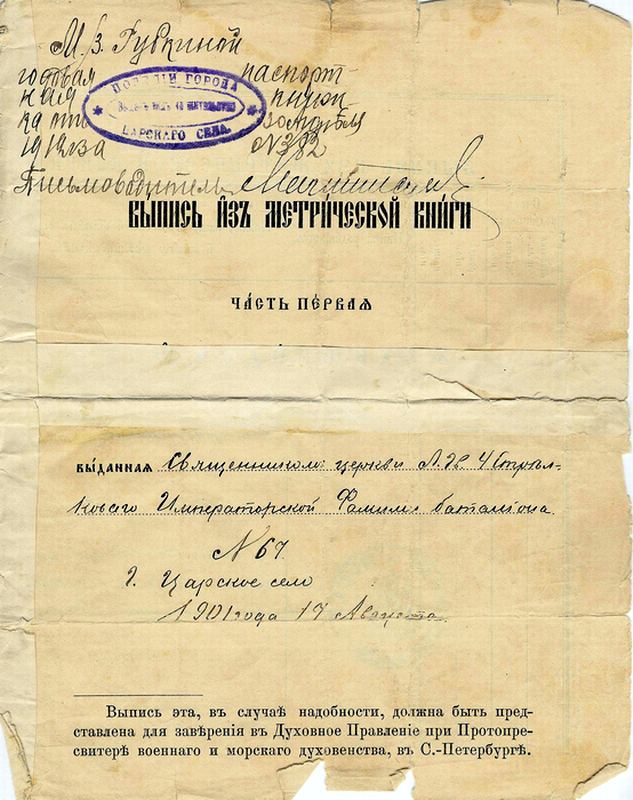 М. З. Губкиной
годовая паспорт
ная книж
ка
1912 за № 382
Письмоводитель
ПОЛИЦІИ ГОРОДА
ЦАРСКАГО СЕЛА
ВЫПИСЬ ИЗЪ МЕТРИЧЕСКОЙ КНИГИ
ЧАСТЬ ПЕРВАЯ
ВЫДАННАЯ Священникомъ церкви Л. Гв. 4 Стрѣл-
коваго Императорской Фамиліи баталіона
№ 67
г. Царское село
1901 года 17 Августа.
Выпись эта, въ случаѣ надобности, должна быть пред-
ставлена для завѣренія въ Духовное Правленіе при Протопре-
свитерѣ военнаго и морскаго духовенства, въ С.-Петербургѣ.